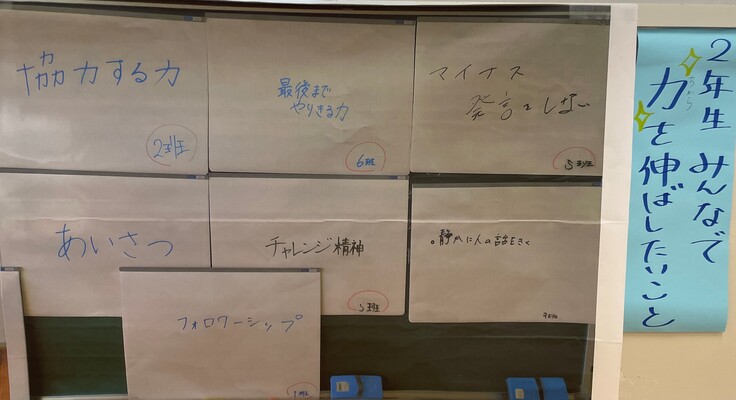 2年生 みんなで
力を伸ばしたいこと
ちから
協力する力
2班
最後まで
やりきる力
6班
マイナス
発言をしない
5班
あいさつ
チャレンジ精神
3班
。静かに人の話をきく
フォロワーシップ
1班